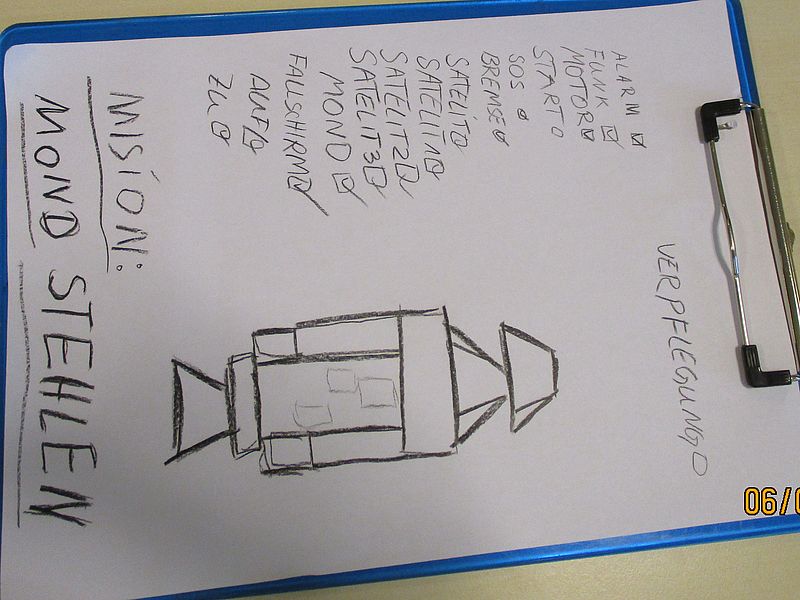 VERPFLEGUNG
ALARM
FUNK
MOTOR
START
SOS
BREMSE
SATELIT
SATELIT1
SATELIT2
SATELIT3
MOND
FALSCHIRM
AUF/
ZU
MISION:
MOND STEHLEN
06/0